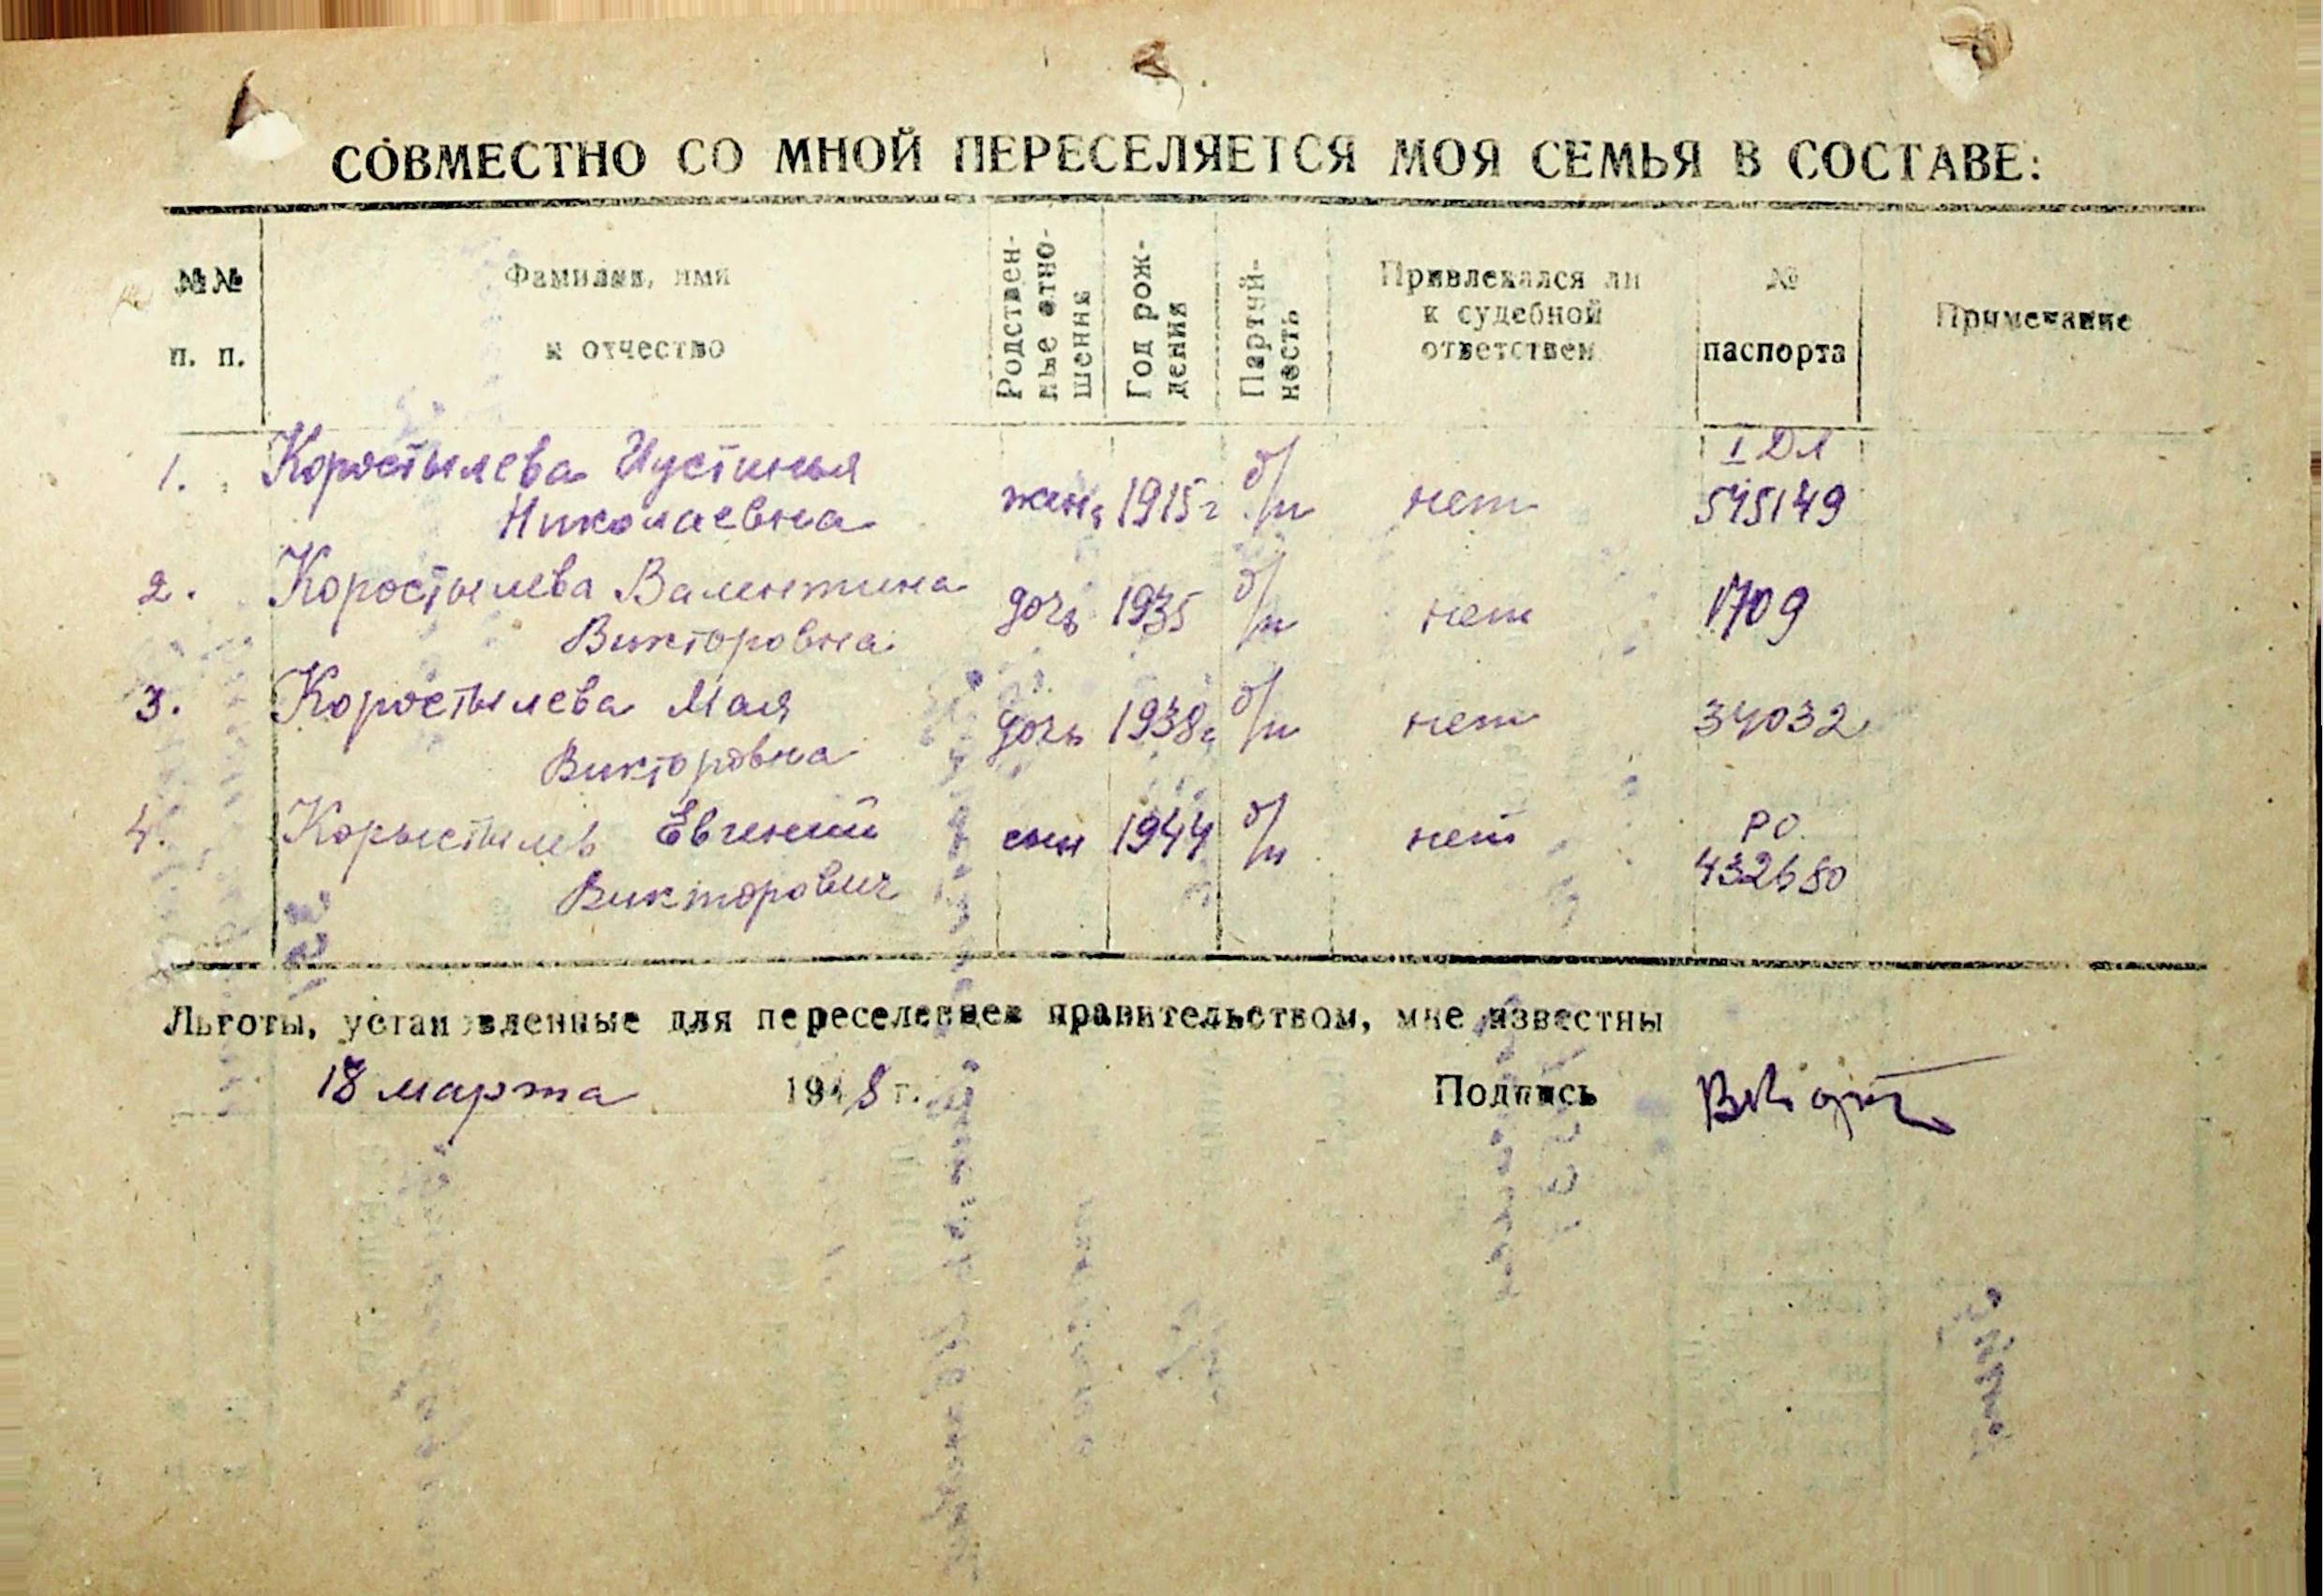 СОВМЕСТНО СО МНОЙ ПЕРЕСЕЛЯЕТСЯ МОЯ СЕМЬЯ В СОСТАВЕ:
№№ п. п.
Фамилия, имя
и отчество
Родствен-
ные отно-
шения
Год рож-
дения
Партий-
ность
Привлекался ли
к судебной
ответствен
№
паспорта
Примечание
1. Коростылева Иустинья
Николаевна
жена 1915г б/п нет
I ДЛ
545149
2. Коростылева Валентина
Викторовна
дочь 1935 б/п нет 1709
3. Коростылева Мая
Викторовна
дочь 1938г б/п нет 34032
4. Корыстылев Евгений
Викторович
сын 1944 б/п нет
РО
432680
Льготы, установленные для переселенцев правительством, мне известны
18 марта 1948 г. Подпись